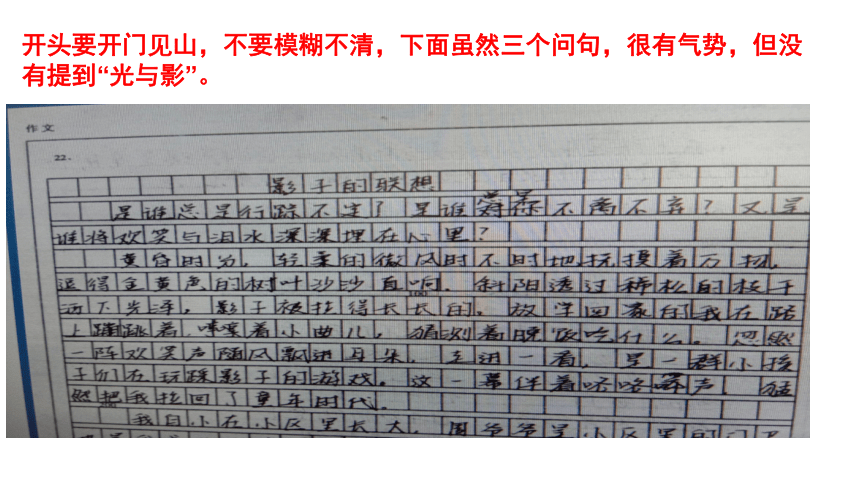 开头要开门见山，不要模糊不清，下面虽然三个问句，很有气势，但没
有提到“光与影”。
作文
22.
影子的联想
是谁总是行踪不定？是谁对你不离不弃？又是
谁将欢笑与泪水深深埋在心里？
黄昏时分，轻柔的微风时不时地抚摸着万物，
逗得金黄色的树叶沙沙直响。斜阳透过稀松的枝干
洒下光泽，影子被拉得长长的，放学回家的我在路
上蹦跳着，哼着小曲儿，猜测着晚饭吃什么。忽然
一阵欢笑声随风飘进耳朵，走进一看，是一群小孩
子们在玩踩影子的游戏。这一幕伴着咯咯声，猛
然把我拉回了童年时代。
我自小在小区里长大，周爷爷是小区里的门卫